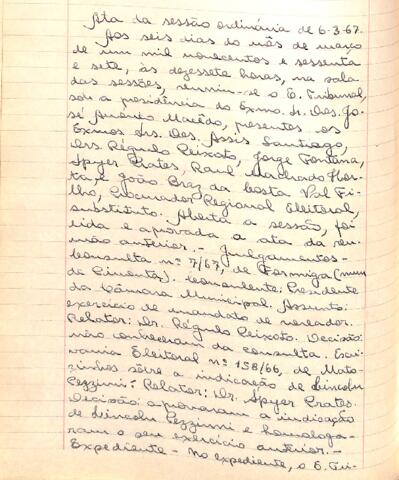 Ata da sessão ordinária de 6-3-67.
Aos seis dias do mês de março
de um mil novecentos e sessenta
e sete, às dezessete horas, na sala
das sessões, reuniu-se o E. Tribunal,
sob a presidência do Exmo. Sr. Des. Jo-
sé Américo Macêdo, presentes os
Exmos Srs. Des. Assis Santiago,
Drs. Régulo Peixoto, Jorge Fontana,
Speyer Prates, Raul Machado Hor-
ta, e João Braz da Costa Val Fi-
lho, Procurador Regional Eleitoral,
substituto. Aberta a sessão, foi
lida e aprovada a ata da reu-
nião anterior. - Julgamentos -
Consulta nº 7/67, de Formiga (mun.
de Pimenta). Consulente: Presidente
da Câmara Municipal. Assunto:
exercício de mandato de vereador.
Relator: Dr. Régulo Peixoto. Decisão:
não conheceram da consulta. Escri-
vania Eleitoral nº 158/66, de Mato-
zinhos sôbre a indicação de Lincoln
Pezzini. Relator: Dr. Speyer Prates.
Decisão: aprovaram a indicação
de Lincoln Pezzini e homologa-
ram o seu exercício anterior. -
Expediente - No expediente, o E. Tri-